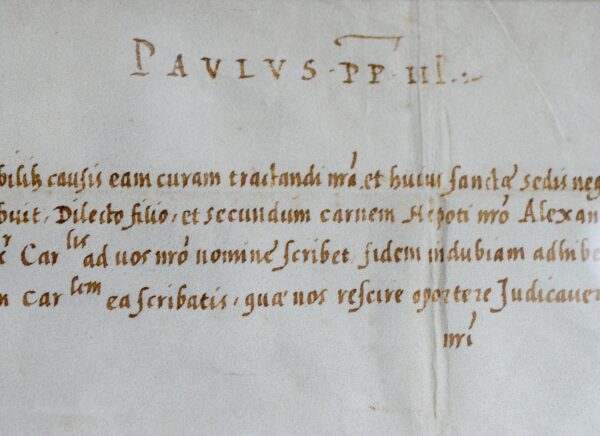 PAVLVS · PP · III ·:·
bilib; causis eam curam tractandi nrā, et huius sanctæ sedis neg
buit, Dilecto filio, et secundum carnem Nepoti nrō Alexan
Car^lis ad uos nrō nomine scribet, fidem indubiam adhibe
Car^lem ea scribatis, quæ nos rescire oportere Judicauer
nrī